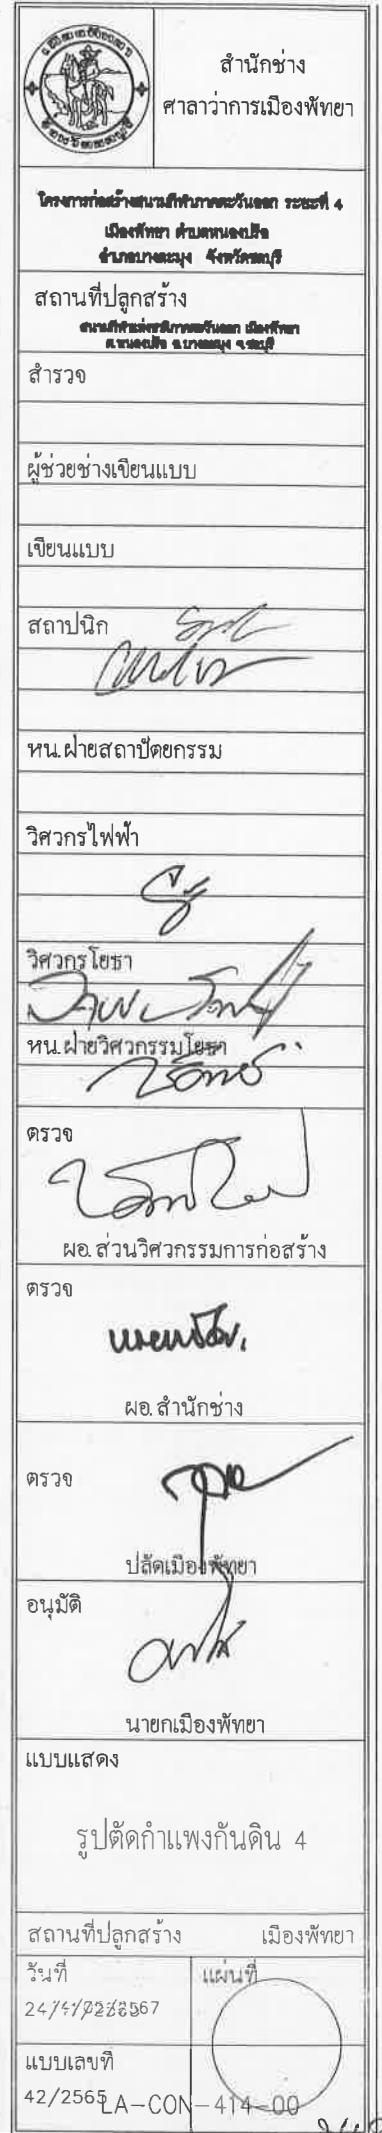 สำนักช่าง
ศาลาว่าการเมืองพัทยา
โครงการก่อสร้างสนามกีฬาภาคตะวันออก ระยะที่ 4
เมืองพัทยา ตำบลหนองปรือ
อำเภอบางละมุง จังหวัดชลบุรี
สถานที่ปลูกสร้าง
สนามกีฬาแห่งชาติภาคตะวันออก เมืองพัทยา
ต.หนองปรือ อ.บางละมุง จ.ชลบุรี
สำรวจ
ผู้ช่วยช่างเขียนแบบ
เขียนแบบ
สถาปนิก
หน.ฝ่ายสถาปัตยกรรม
วิศวกรไฟฟ้า
วิศวกรโยธา
หน.ฝ่ายวิศวกรรมโยธา
ตรวจ
ผอ.ส่วนวิศวกรรมการก่อสร้าง
ตรวจ
ผอ.สำนักช่าง
ตรวจ
ปลัดเมืองพัทยา
อนุมัติ
นายกเมืองพัทยา
แบบแสดง
รูปตัดกำแพงกันดิน 4
สถานที่ปลูกสร้าง เมืองพัทยา
วันที่ แผ่นที่
แบบเลขที่
42/2565 LA-CON-414-00